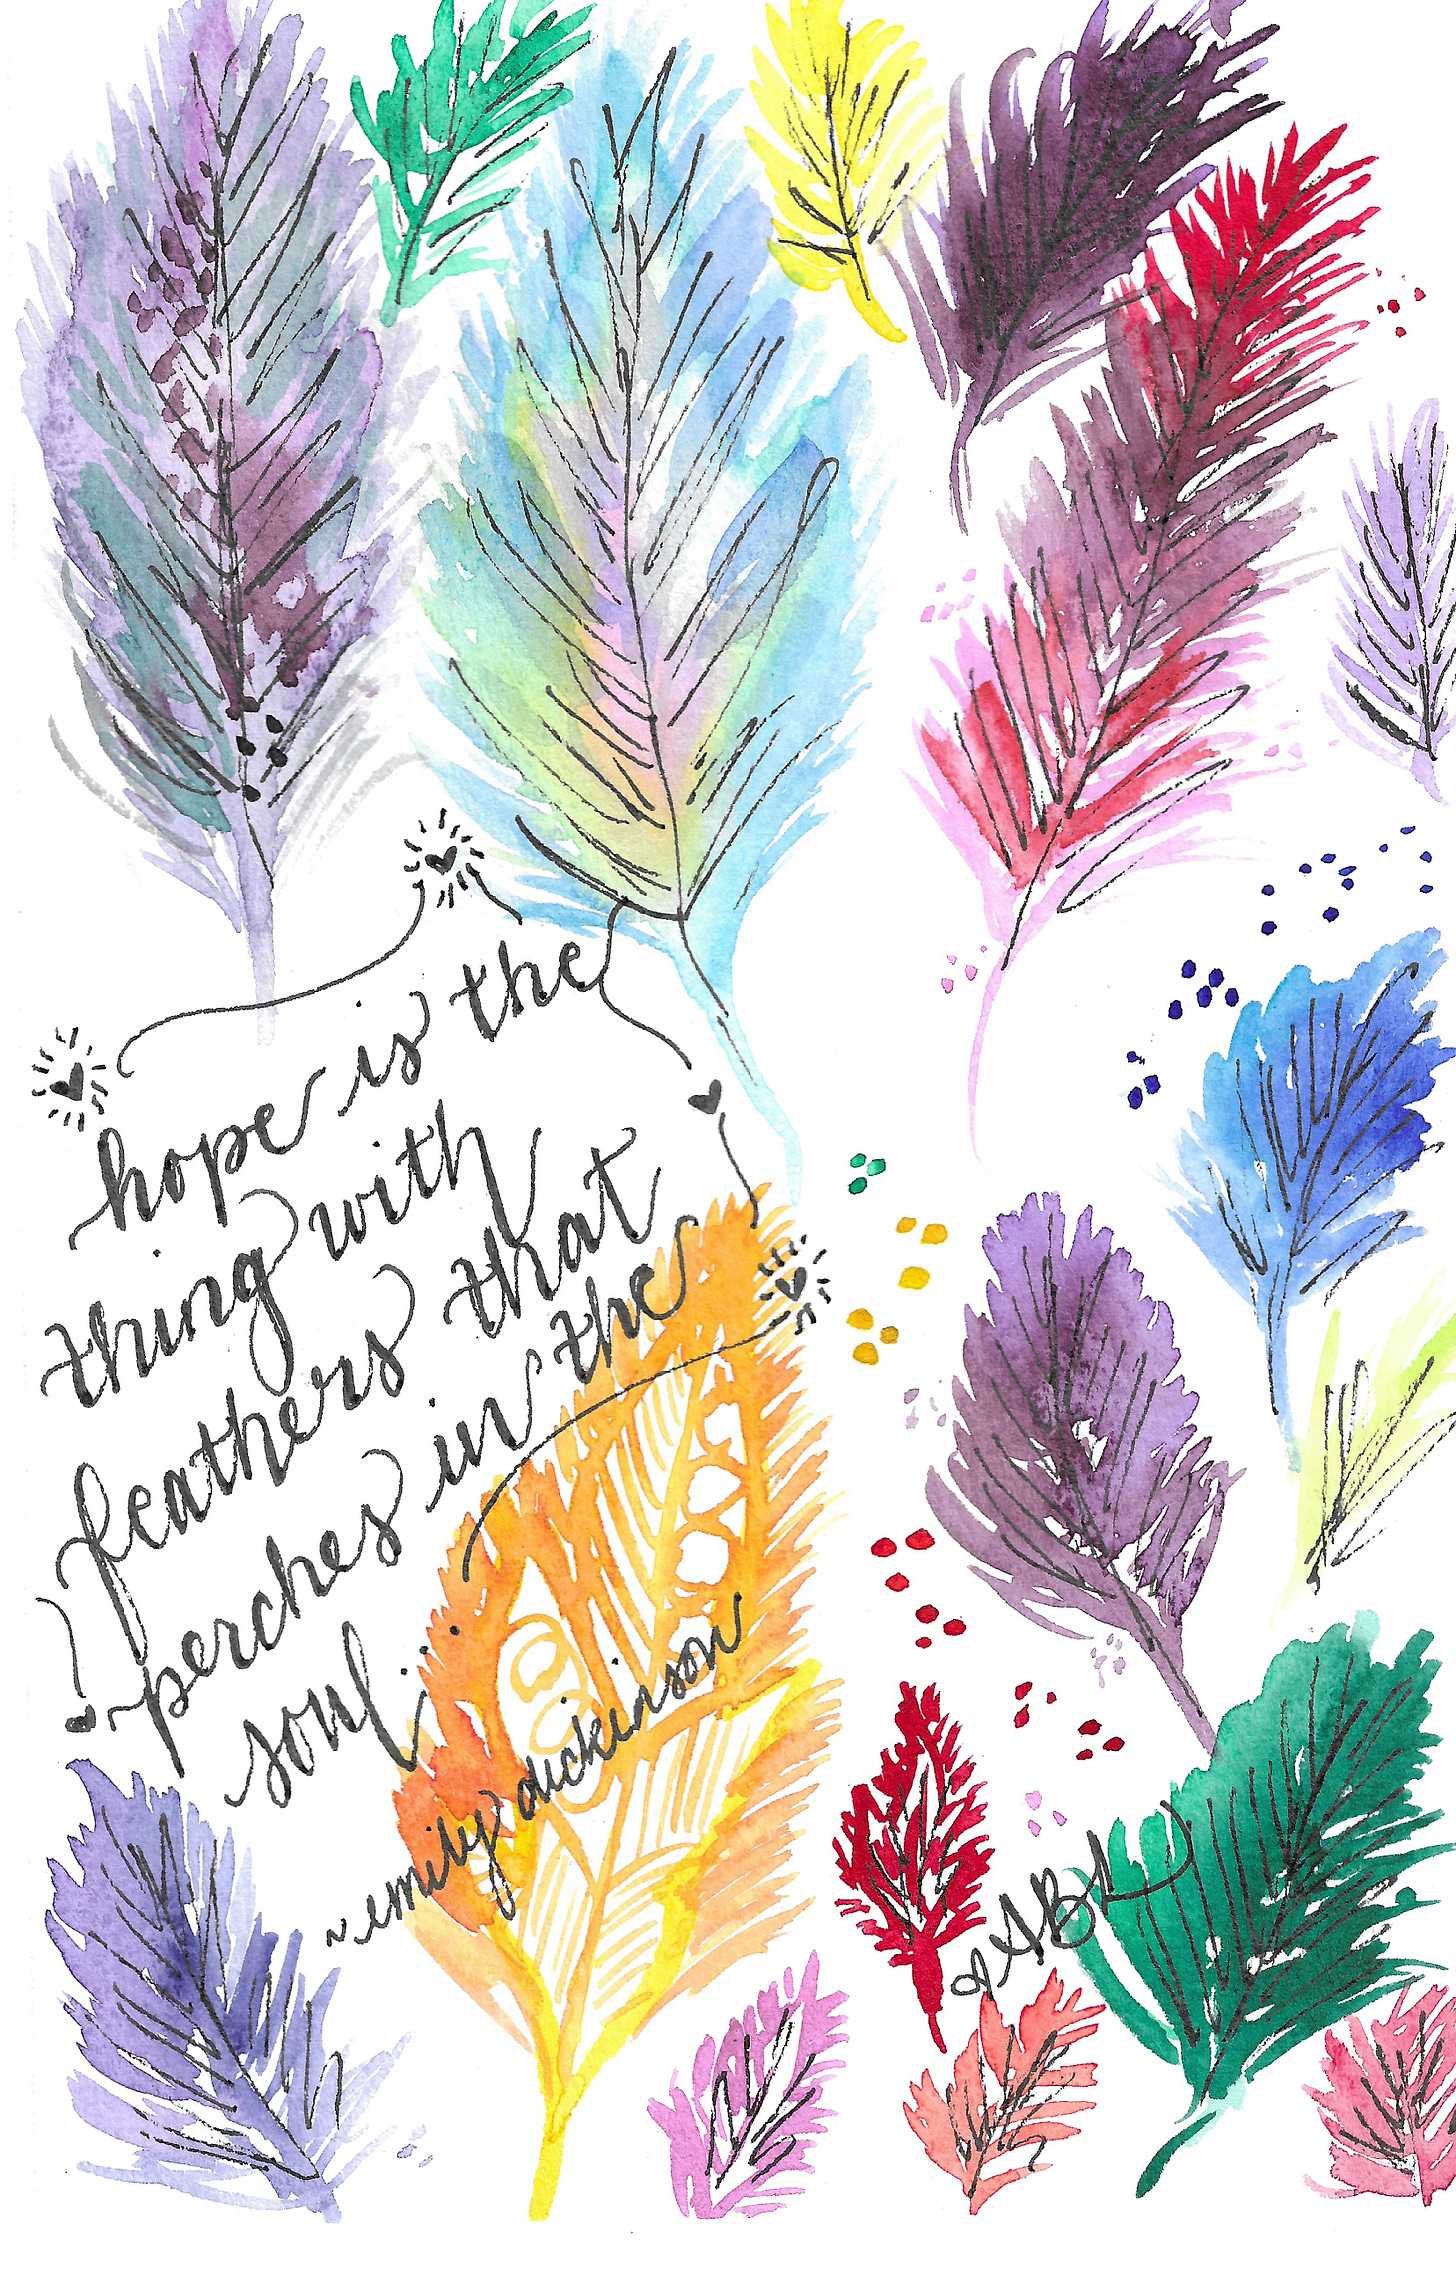 hope is the
thing with
feathers that
perches in the
soul...
~emily dickinson